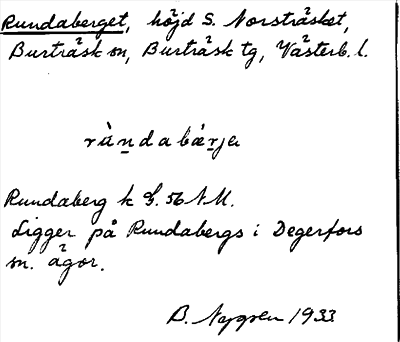 Rundaberget, höjd S. Norsträsket,
Burträsk sn, Burträsk tg, Västerb. l.
rùndabärja
Rundaberg k bl. 56 NM.
Ligger på Rundabergs i Degerfors
sn. ägor.
B. 1933